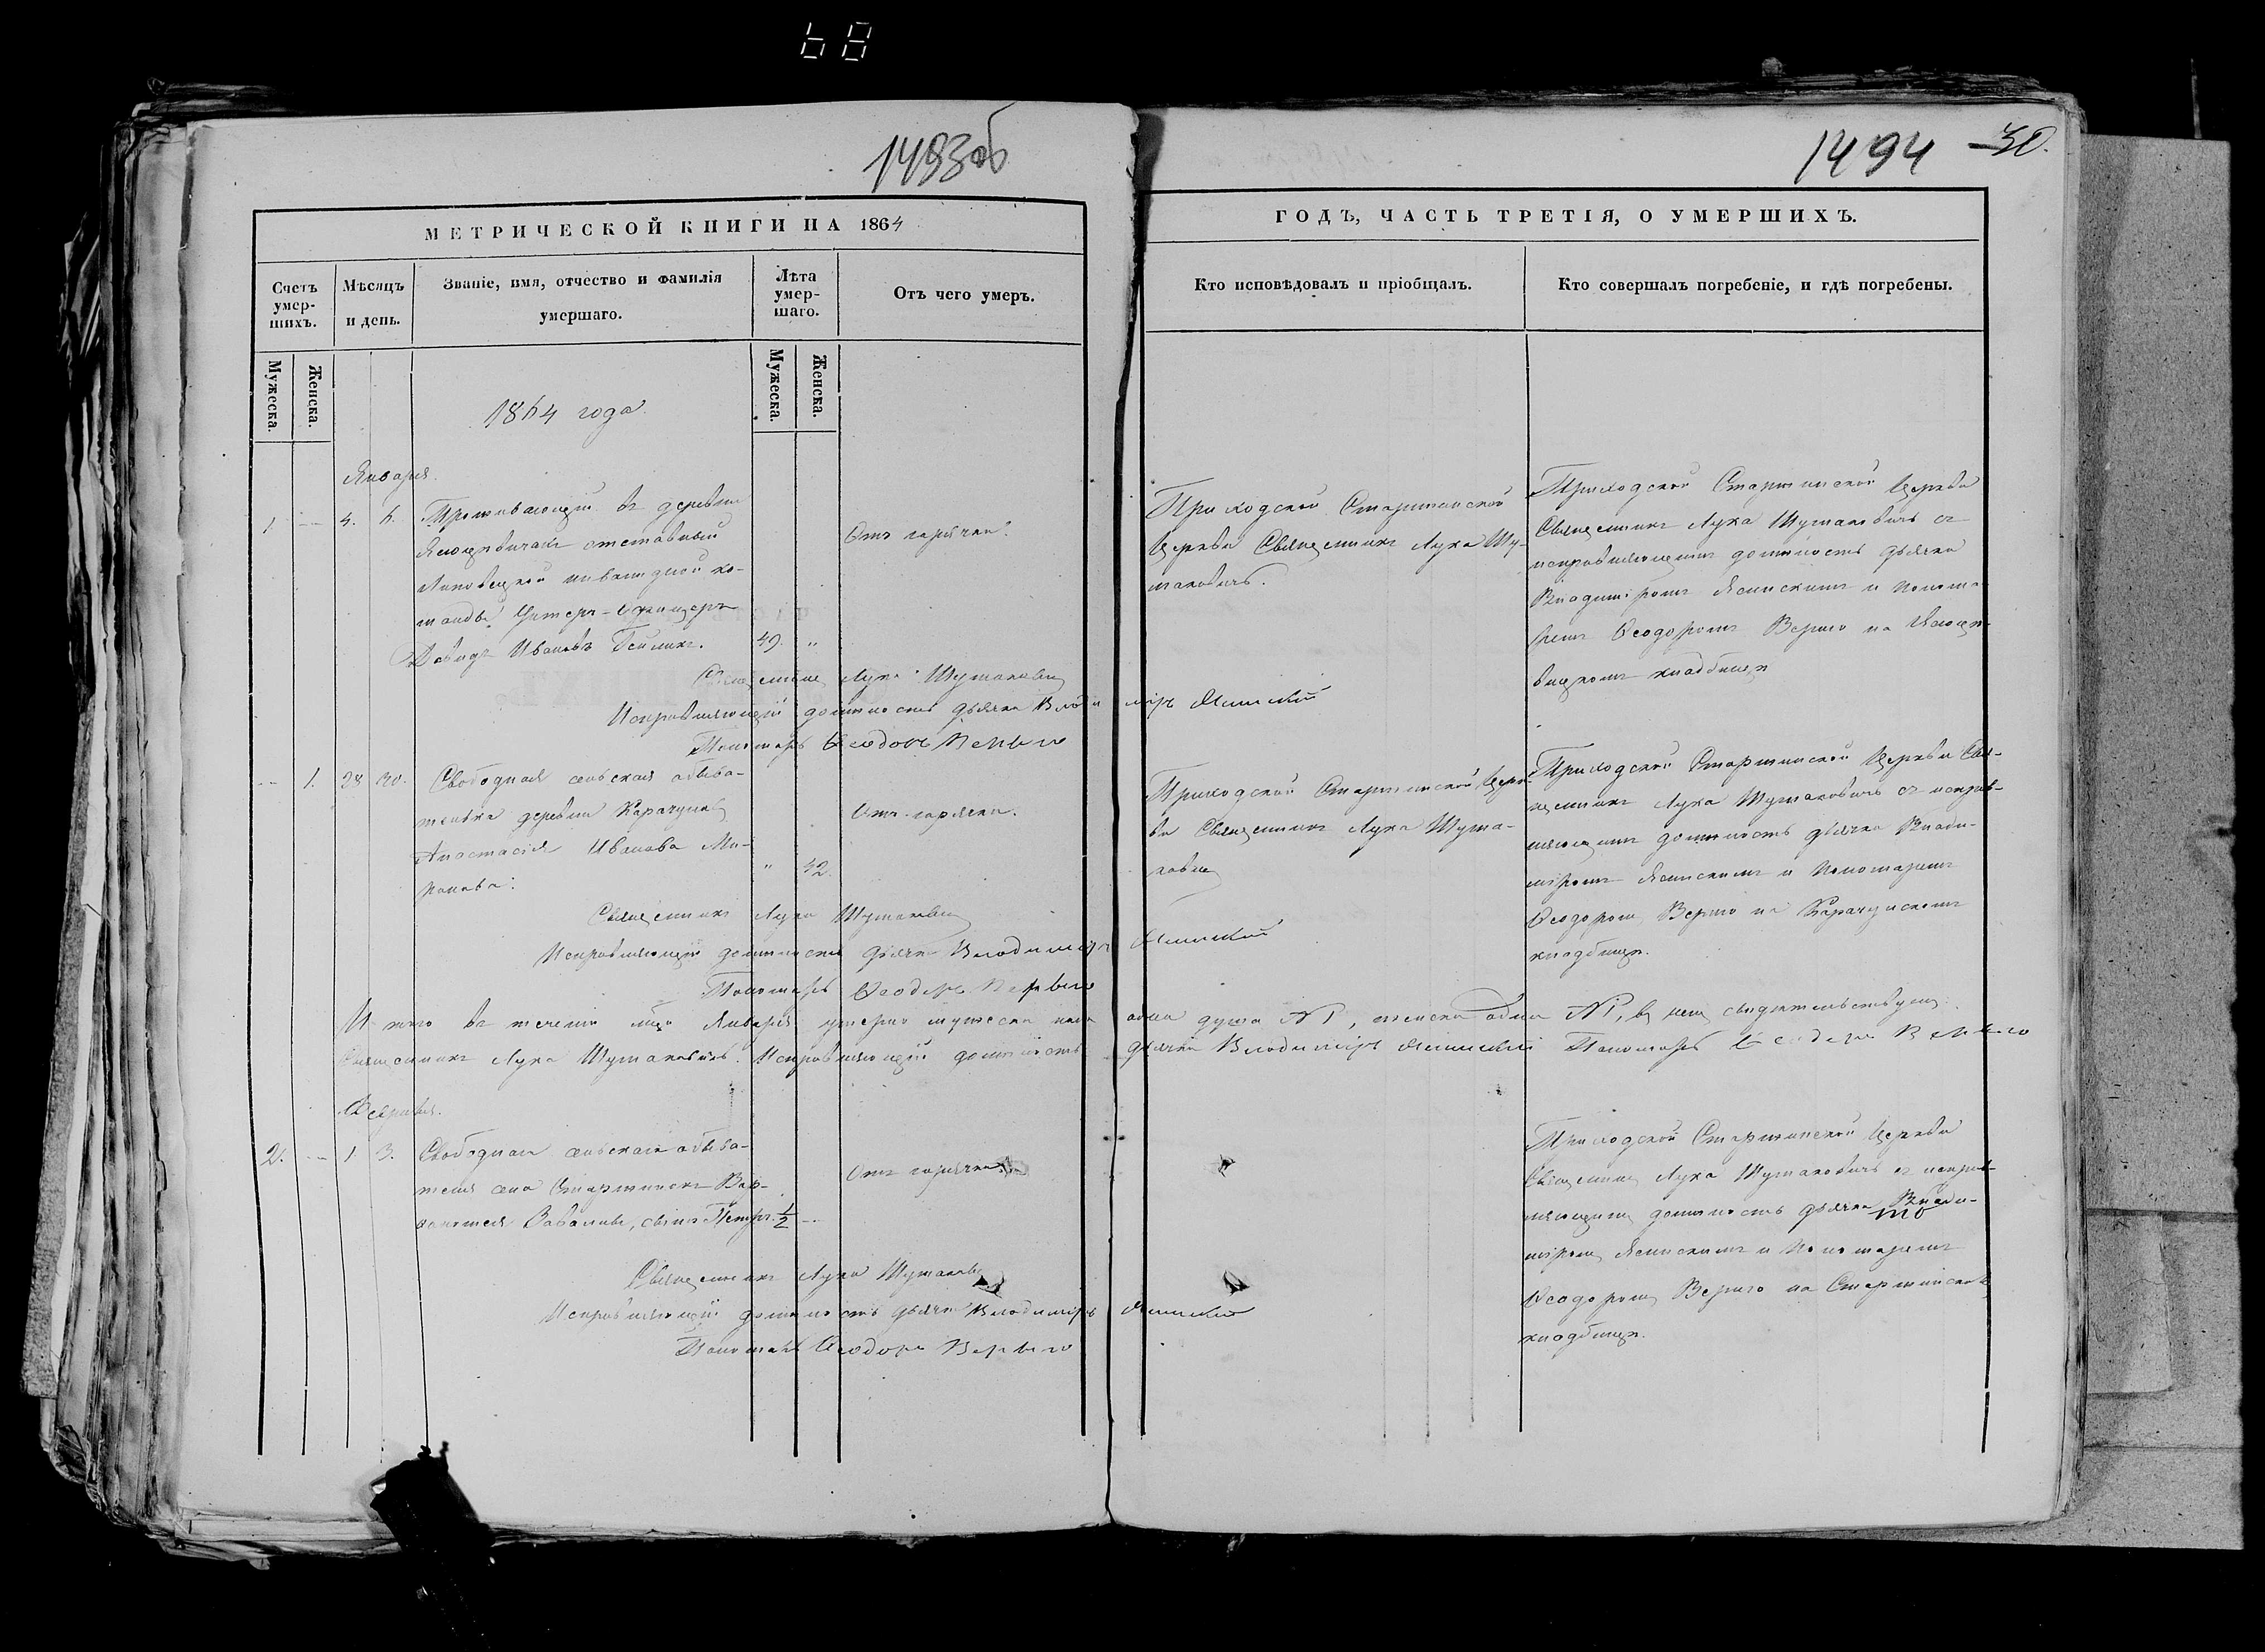 68
1493об
1494 30.
МЕТРИЧЕСКОЙ КНИГИ НА 1864
ГОДЪ, ЧАСТЬ ТРЕТІЯ, О УМЕРШИХЪ.
Счетъ умер-
шихъ.
Мѣсяцъ
и день.
Званіе, имя, отчество и фамилія
умершаго.
Лѣта
умер-
шаго.
Отъ чего умеръ.
Кто исповѣдовалъ и пріобщалъ.
Кто совершалъ погребеніе, и гдѣ погребены.
Мужеска.
Женска.
Мужеска.
Женска.
1864 года.
Января.
1. — 4. 6. Проживающій въ деревни
отставный
инвалидной ко-
манды Унтеръ-Офицеръ
Давидъ Ивановъ 49. „
Отъ горячки.
Приходской Старжинской
Церкви Священникъ Лука Шу-
маковичъ.
Приходской Старжинской Церкви
Священникъ Лука Шумаковичъ съ
исправляющимъ должность дьячка
Владиміромъ Ясинскимъ и Понома-
ремъ Ѳеодоромъ Вериго на
кладбищѣ
Священникъ Лука Шумаковичъ
Исправляющій должность дьячка Владиміръ Ясинскій
Пономарь Ѳеодоръ Верыго
— 1. 28 30. Свободная сельская обыва-
телька деревни Карачуна
Анастасія Иванова Ми-
ронова. „ 42.
Отъ горячки.
Приходской Старжинской Церк-
ви Священникъ Лука Шума-
ковичъ
Приходской Старжинской Церкви Свя-
щенникъ Лука Шумаковичъ съ исправ-
ляющимъ должность дьячка Влади-
міромъ Ясинскимъ и Пономаремъ
Ѳеодоромъ Вериго на Карачунскомъ
кладбищѣ.
Священникъ Лука Шумаковичъ
Исправляющій должность дьячка Владиміръ Ясинскій
Пономарь Ѳеодоръ Верыго
Итого въ теченіи мѣсяца Января умерло мужеска пола одна душа №1, женска одна №1, въ чемъ свидѣтельствуемъ:
Священникъ Лука Шумаковичъ. Исправляющій должность дьячка Владиміръ Ясинскій Пономарь Ѳеодоръ Верыго
Февраля.
2. — 1. 3. Свободнаго сельскаго обыва-
теля села Старжинска Вар-
Завалива, сынъ Петръ. 1/2 —
Отъ горячки
Приходской Старжинской Церкви
Священникъ Лука Шумаковичъ съ исправ-
ляющимъ должность дьячка Влади-
міромъ Ясинскимъ и Пономаремъ
Ѳеодоромъ Вериго на Старжинскомъ
кладбищѣ.
Священникъ Лука Шумаковичъ
Исправляющій должность дьячка Владиміръ Ясинскій
Пономарь Ѳеодоръ Верыго